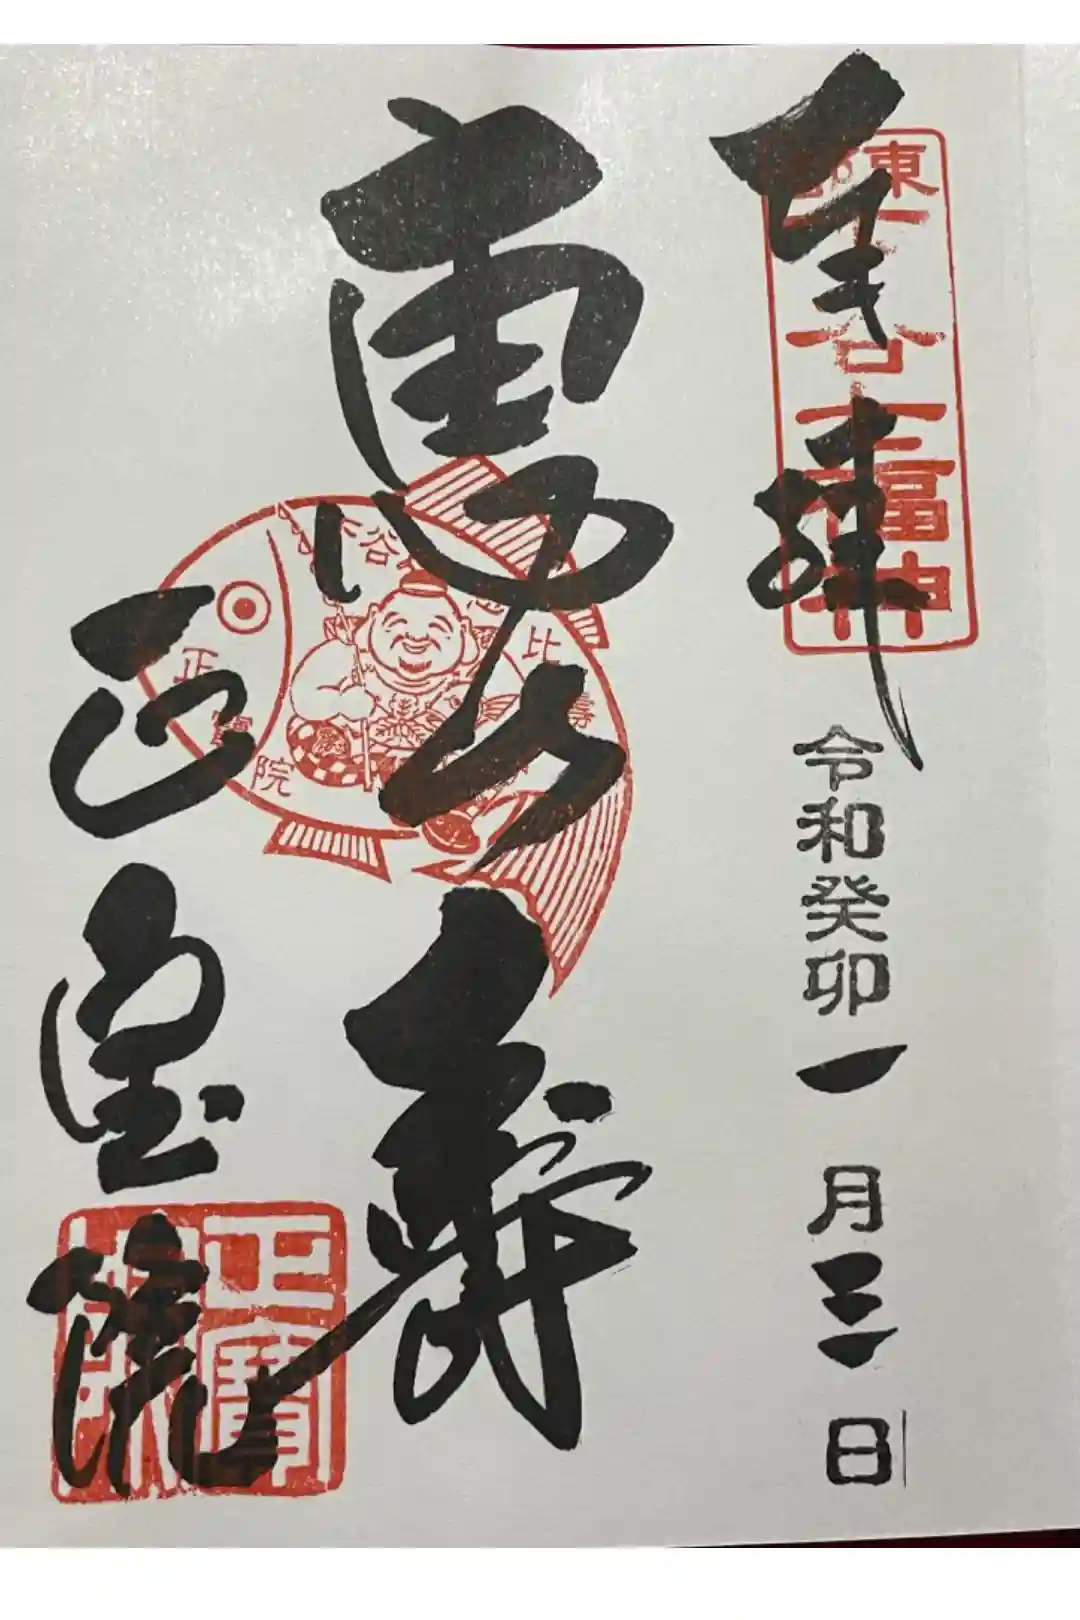 奉拝
東都下谷七福神
令和癸卯一月三日
恵比寿
下谷
正寶院
比壽
正宝院
正寶